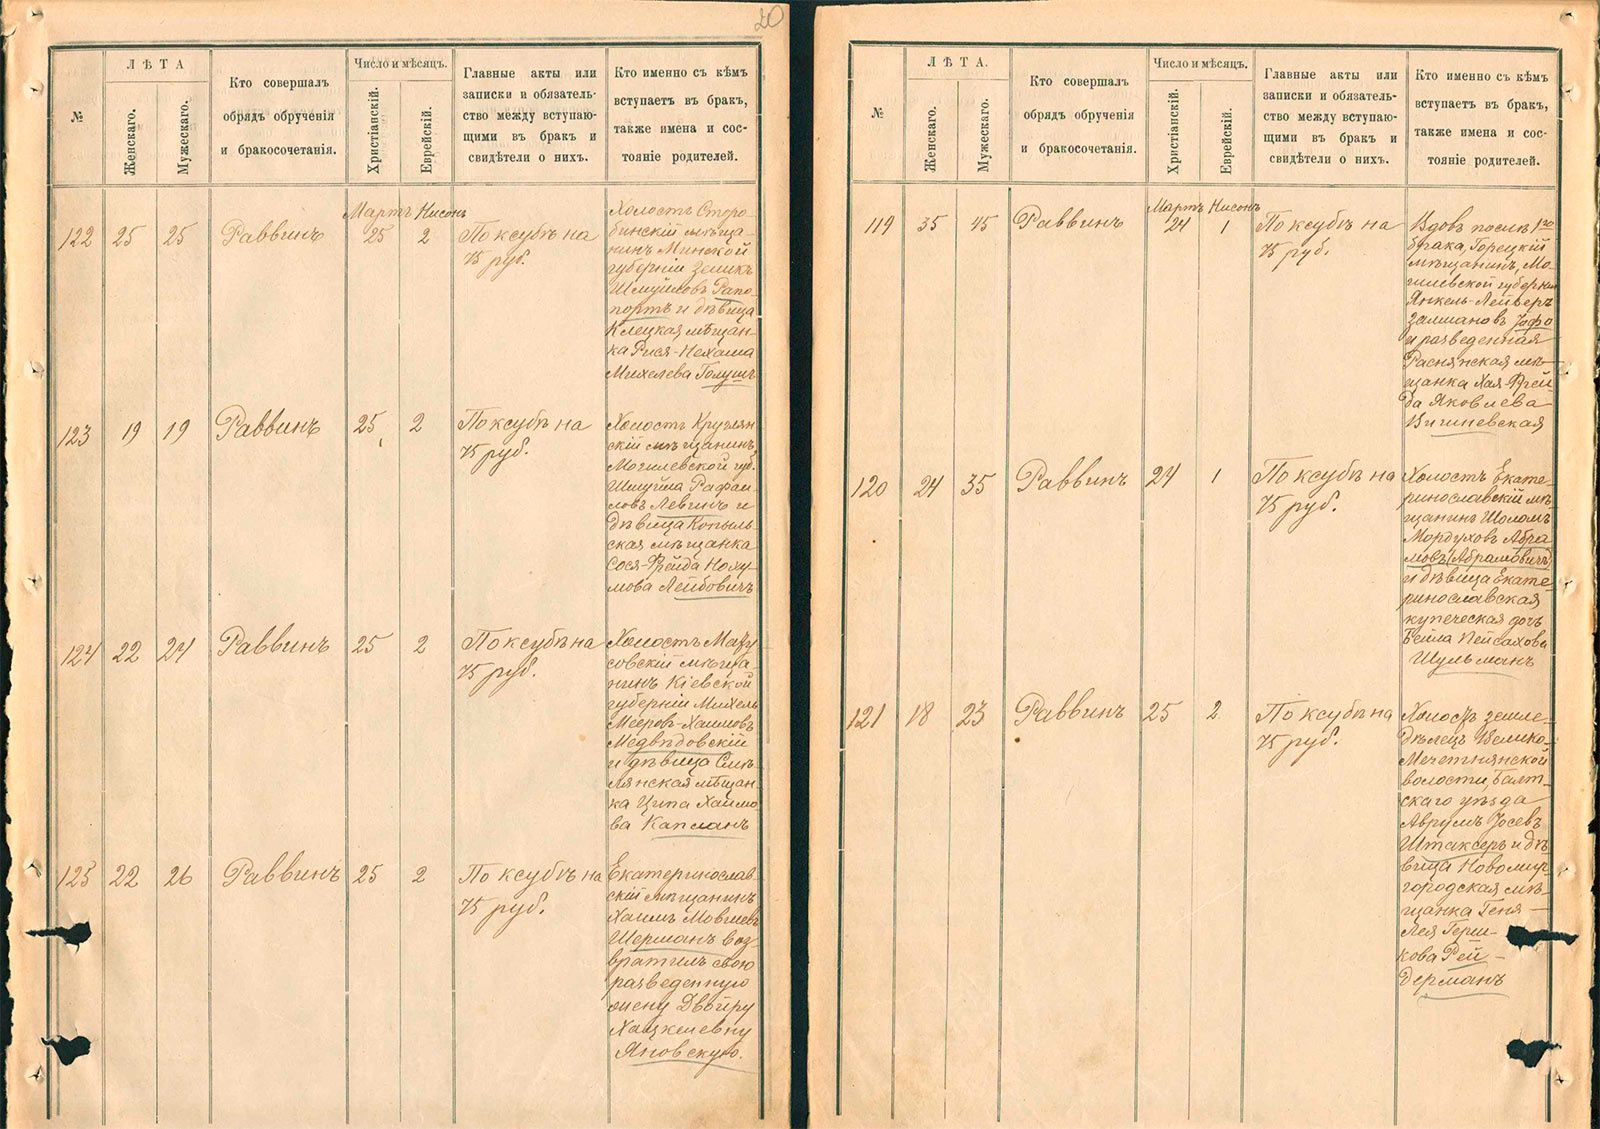 20
№
ЛѢТА
Женскаго.
Мужескаго.
Кто совершалъ
обрядъ обрученія
и бракосочетанія.
Число и мѣсяцъ.
Христіанскій.
Еврейскій.
Главные акты или
записки и обязатель-
ство между вступаю-
щими въ бракъ и
свидѣтели о нихъ.
Кто именно съ кѣмъ
вступаетъ въ бракъ,
также имена и сос-
тояніе родителей.
Мартъ Нисонъ
122 25 25 Раввинъ 25 2 По ксубѣ на
75 руб.
Холостъ Старо-
бинскій мѣща-
нинъ Минской
губерніи Зеликъ
Шмуйловъ Рапо-
портъ и дѣвица
Клецкая мѣщан-
ка Рися-Нехама
Михелева Голушъ
123 19 19 Раввинъ 25 2 По ксубѣ на
75 руб.
Холостъ Круглян-
скій мѣщанинъ
Могилевской губ.
Шмуйла Рафаи-
ловъ Левинъ и
дѣвица Копыль-
ская мѣщанка
Сося-ФрейдаНоху-
мова Лейбовичъ
124 22 24 Раввинъ 25 2 По ксубѣ на
75 руб.
совскій мѣща-
нинъ Кіевской
губерніи Михель
Мееровъ-Хаимовъ
Медвѣдовскій
и дѣвица Смѣ-
лянская мѣщан-
ка Ципа Хаимо-
ва Капланъ
125 22 26 Раввинъ 25 2 По ксубѣ на
75 руб.
Екатеринослав-
скій мѣщанинъ
Хаимъ Мовшевъ
Шерманъ воз-
вратилъ свою
разведенную
жену Двойру
Хацкелевну
Яновскую.
№
ЛѢТА.
Женскаго.
Мужескаго.
Кто совершалъ
обрядъ обрученія
и бракосочетанія.
Число и мѣсяцъ.
Христіанскій.
Еврейскій.
Главные акты или
записки и обязатель-
ство между вступаю-
щими въ бракъ и
свидѣтели о нихъ.
Кто именно съ кѣмъ
вступаетъ въ бракъ,
также имена и сос-
тояніе родителей.
Мартъ Нисонъ
119 35 45 Раввинъ 24 1 По ксубѣ на
75 руб.
Вдовъ послѣ 1го
брака, Горецкій
мѣщанинъ, Мо-
гилевской губерніи
Янкель-Лейзеръ
Залмановъ
и разведенная
Раснянская мѣ-
щанка Хая-Фрей-
да Яковлева
Вишневская
120 24 35 Раввинъ 24 1 По ксубѣ на
75 руб.
Холостъ Екате-
ринославскій мѣ-
щанинъ Шоломъ
Мордуховъ Абра-
мовъ (Абрамовичъ)
и дѣвица Екате-
ринославская
купеческая дочь
Бейла Пейсахова
Шульманъ
121 18 23 Раввинъ 25 2 По ксубѣ на
75 руб.
Холостъ земле-
дѣлецъ Велико-
Мечетнянской
волости, Балт-
скаго уѣзда
Аврумъ Іосевъ
Штаксеръ и дѣ-
вица Новомир-
городская мѣ-
щанка Геня-
Лея Герш-
кова Рей-
дерманъ